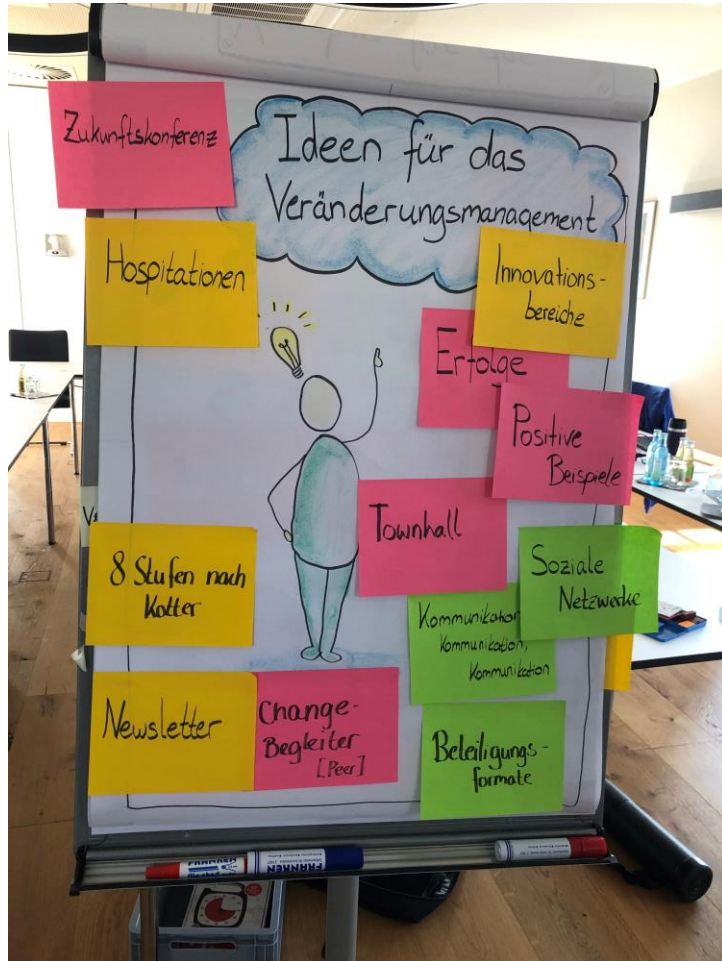 Zukunftskonferenz
Ideen für das
Veränderungsmanagement
Hospitationen
Innovations-
bereiche
Erfolge
Positive
Beispiele
Townhall
8 Stufen nach
Kotter
Soziale
Netzwerke
Kommunikation
Kommunikation,
Kommunikation
Newsletter
Change-
Begleiter
[Peer]
Beteiligungs-
formate
FRANKEN
FRANKEN